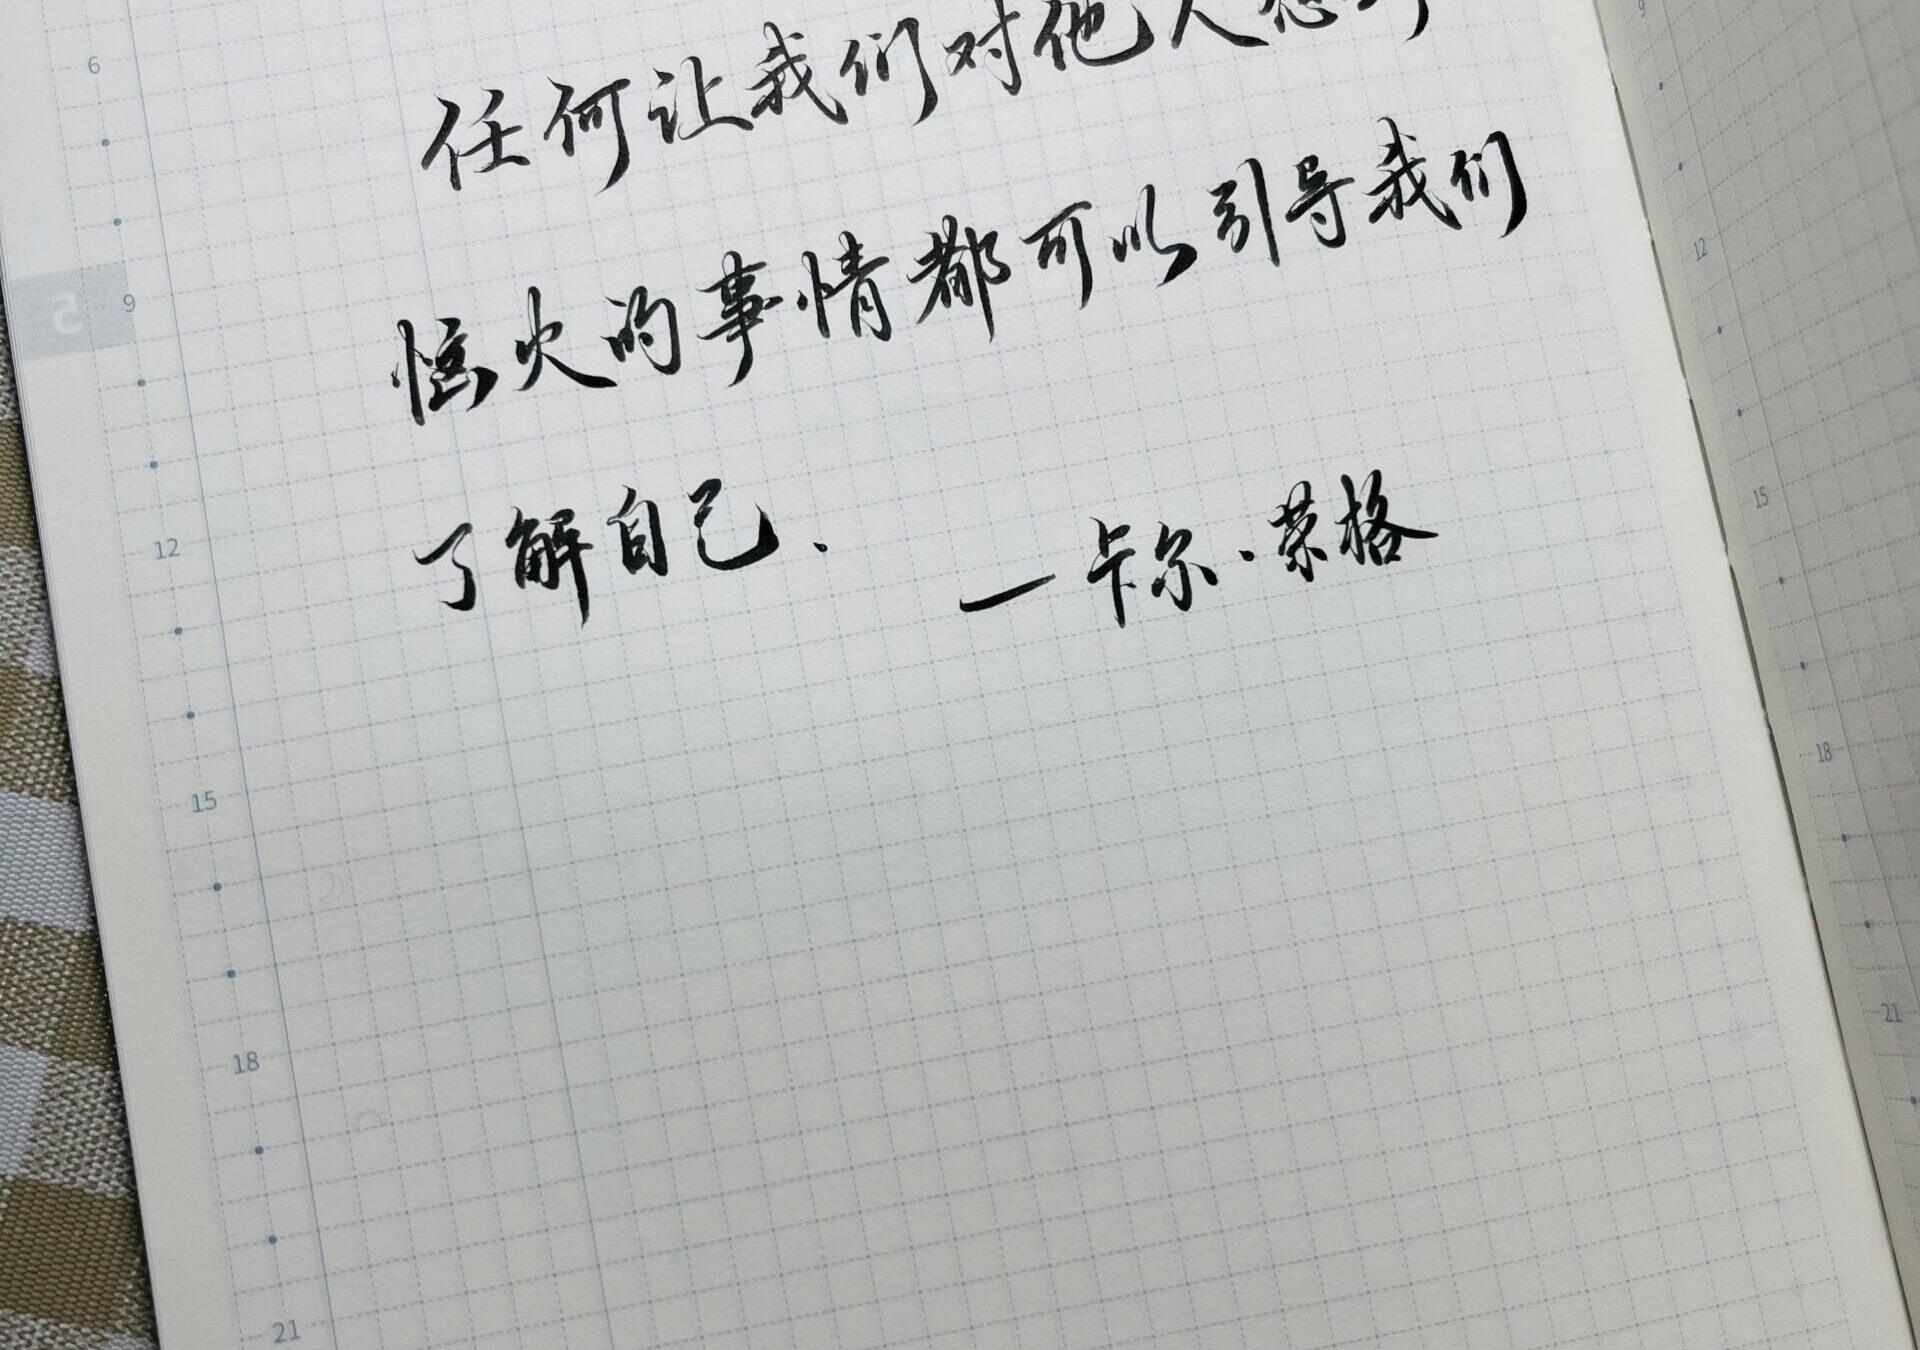 任何让我们对他人感
恼火的事情都可以引导我们
了解自己.
—卡尔·荣格
5
6
9
12
15
18
21
9
12
15
18
21